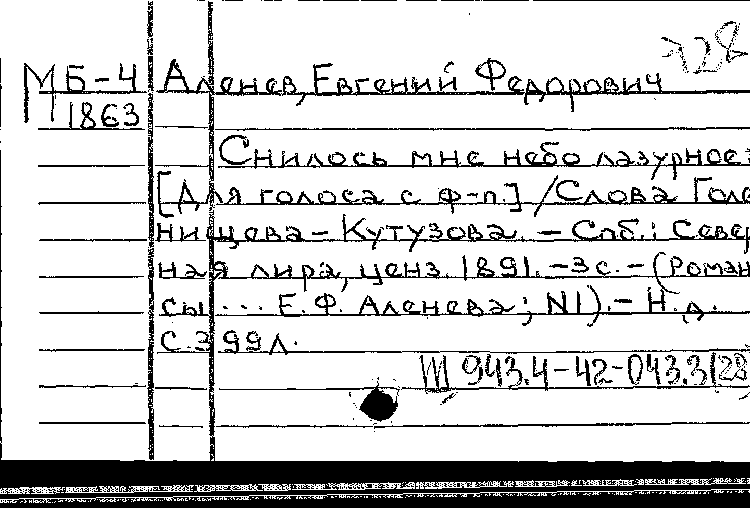 728
МБ-4 Аленев, Евгений Федорович
1863
Снилось мне небо лазурное:
[Для голоса с ф-п.] / Слова Голе
нищева-Кутузова. - Спб.: Север
ная лира, ценз. 1891. - 3 с. - (Роман
сы ... Е. Ф. Аленева; N1). - Н.д.
С.399л.
Ш 943.4-42-043.3(28